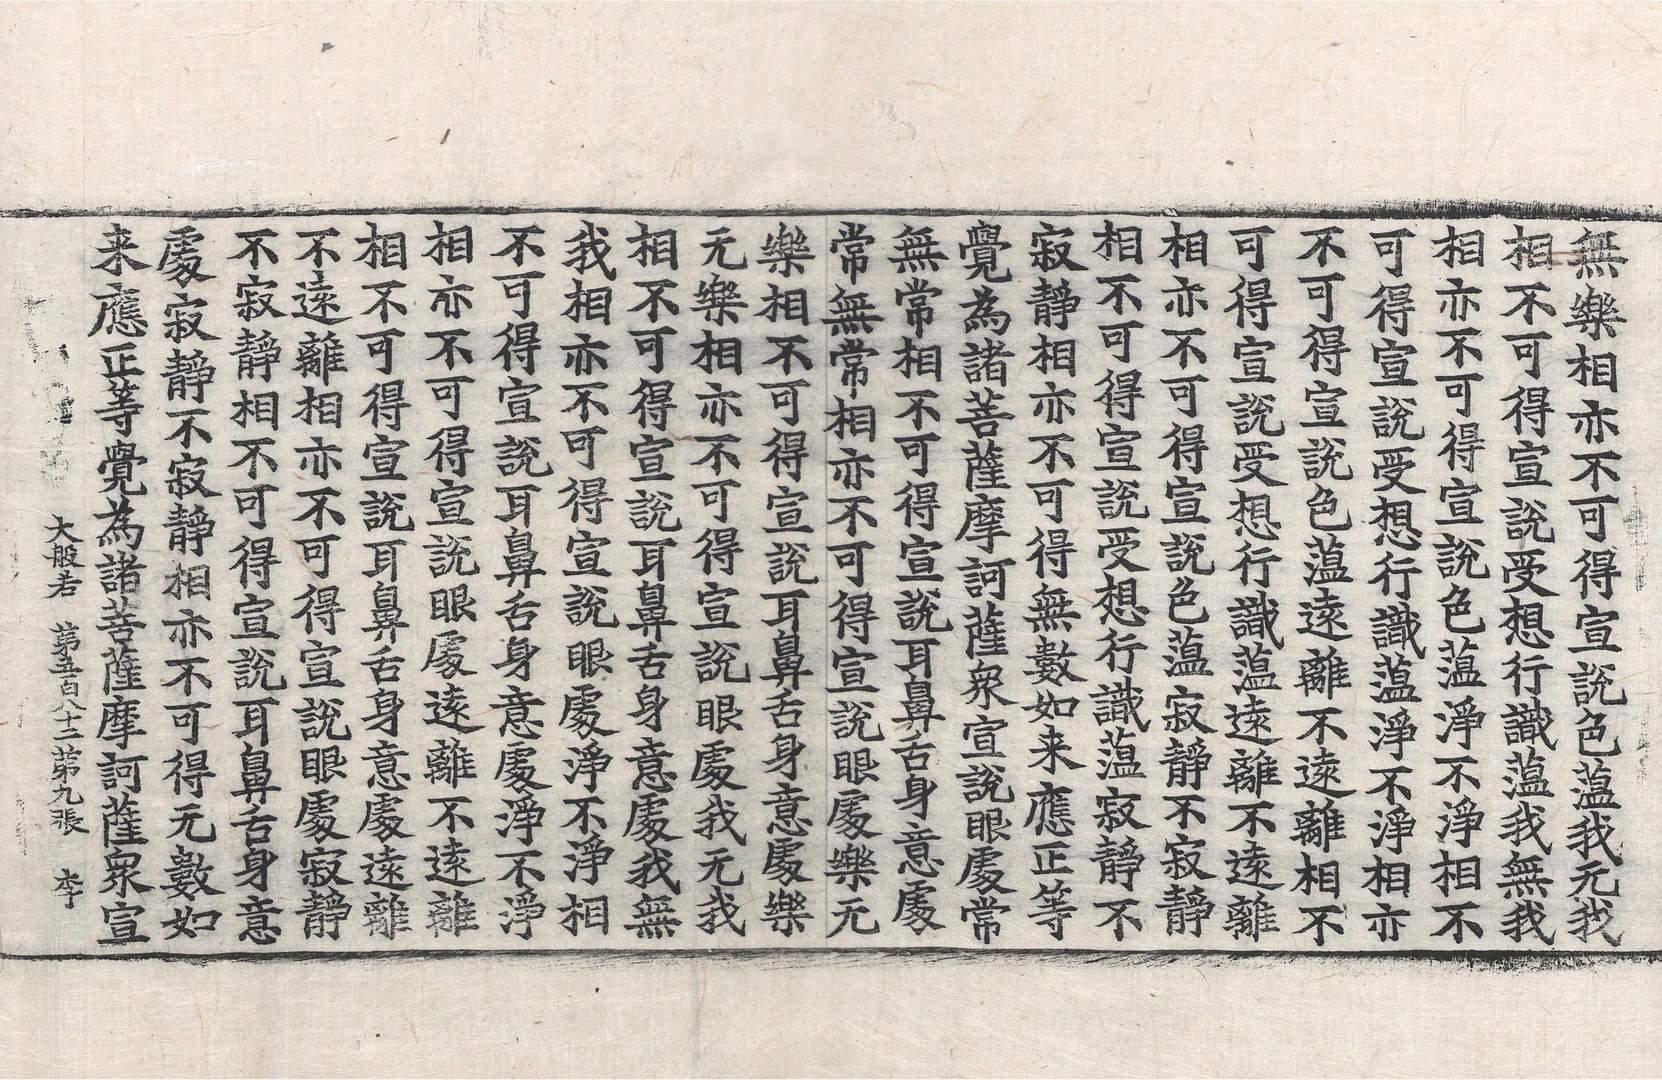 無樂相亦不可得宣說色薀我无我
相不可得宣說受想行識薀我無我
相亦不可得宣說色薀淨不淨相不
可得宣說受想行識薀淨不淨相亦
不可得宣說色薀遠離不遠離相不
可得宣說受想行識薀遠離不遠離
相亦不可得宣說色薀寂靜不寂靜
相不可得宣說受想行識薀寂靜不
寂靜相亦不可得無數如来應正等
覺為諸菩薩摩訶薩衆宣說眼處常
無常相不可得宣說耳鼻舌身意處
常無常相亦不可得宣說眼處樂无
樂相不可得宣說耳鼻舌身意處樂
无樂相亦不可得宣說眼處我无我
相不可得宣說耳鼻舌身意處我無
我相亦不可得宣說眼處淨不淨相
不可得宣說耳鼻舌身意處淨不淨
相亦不可得宣說眼處遠離不遠離
相不可得宣說耳鼻舌身意處遠離
不遠離相亦不可得宣說眼處寂靜
不寂靜相不可得宣說耳鼻舌身意
處寂靜不寂靜相亦不可得无數如
来應正等覺為諸菩薩摩訶薩衆宣
大般若 第五百八十二 第九張 李